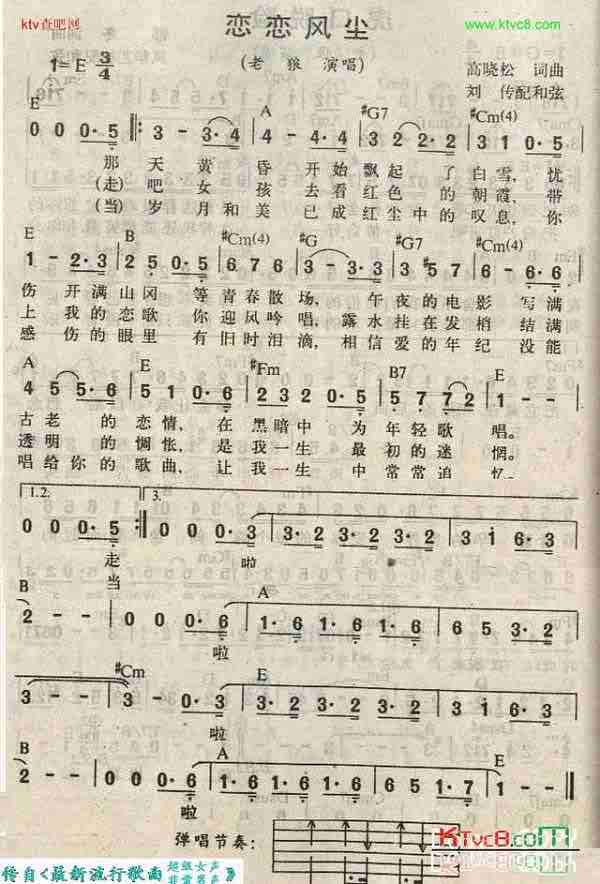 ktv查吧网
恋恋风尘
吧
www.ktvc8.com
1=E 3/4
(老狼 演唱)
高晓松 词曲
刘 传配和弦
E A #G7 #Cm(4)
0 0 0· 5 3 - 3· 4 4 - 4· 4 3 2 2 2· 3 1 0· 5
那天黄昏开始飘起了白雪,忧
(走)吧女孩去看红色的朝霞,带
(当)岁月和美已成红尘中的叹息,你
E B #Cm(4) #G #G7 #Cm(4)
1 - 2· 3 2 5 0· 5 6 7 6 3 - 3· 3 3 #5 7 6 - 6· 6
伤开满山冈等青春散场,午夜的电影写满
上我的恋歌你迎风吟唱,露水挂在发梢结满
感伤的眼里有旧时泪滴,相信爱的年纪没能
A E #Fm B7 E
4 5 5· 6 5 1 0· 6 2 3 2 0· 3 5 7 7 2 1 - -
古老的恋情,在黑暗中为年轻歌唱。
透明的惆怅,是我一生最初的迷惘。
唱给你的歌曲,让我一生中常常追忆。
1.2. 3.
0 0 0· 5 0 0 0· 3 3· 2 3· 2 3· 2 3· 2 3· 2 3· 2 3 1 6· 3
走 啦
当
B A
2 - - 0 0 0· 6 1· 6 1· 6 1· 6 1· 6 1· 6 1· 6 6 5 3· 2
啦
#Cm E
3 - - 3 0 0· 3 3· 2 3· 2 3· 2 3· 2 3· 2 3· 2 3 1 6· 3
啦
B A E
2 - - 0 0 0· 6 1· 6 1· 6 1· 6 1· 6 6 5 1· 7 1 - -
啦
弹唱节奏:
KTvc8.com
传自<最新流行歌曲 超级女声 非常男声》